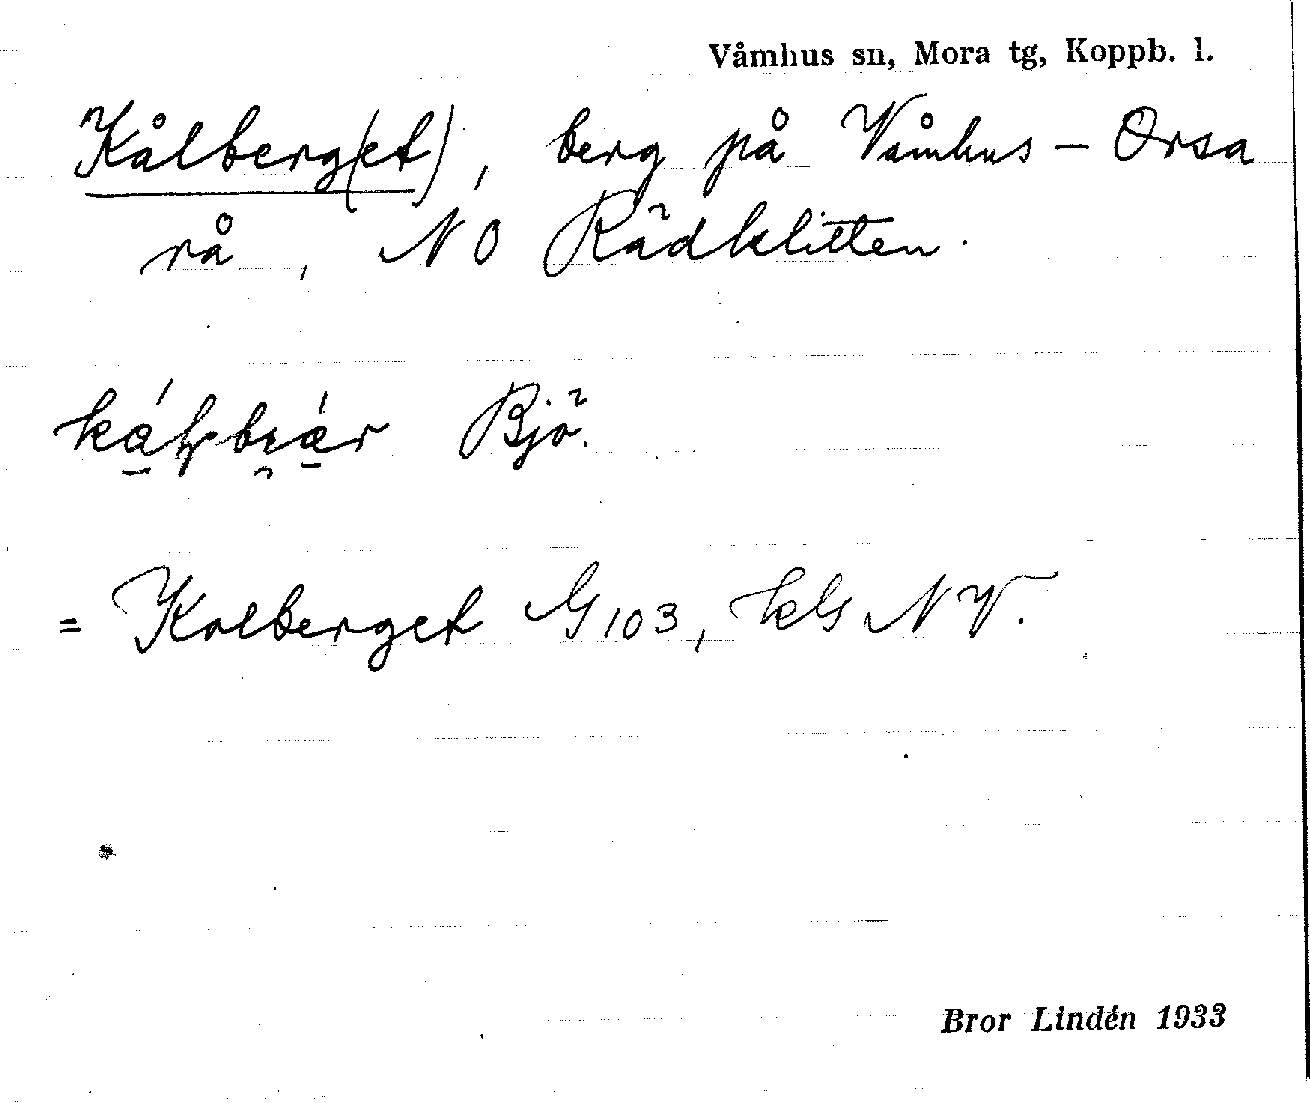 Våmhus sn, Mora tg, Koppb. l.
Kålberg(et), berg på Våmhus – Orsa
rå, NO Rädklitten.
Bjö.
= Kolberget G 103, kls NV.
Bror Lindén 1933